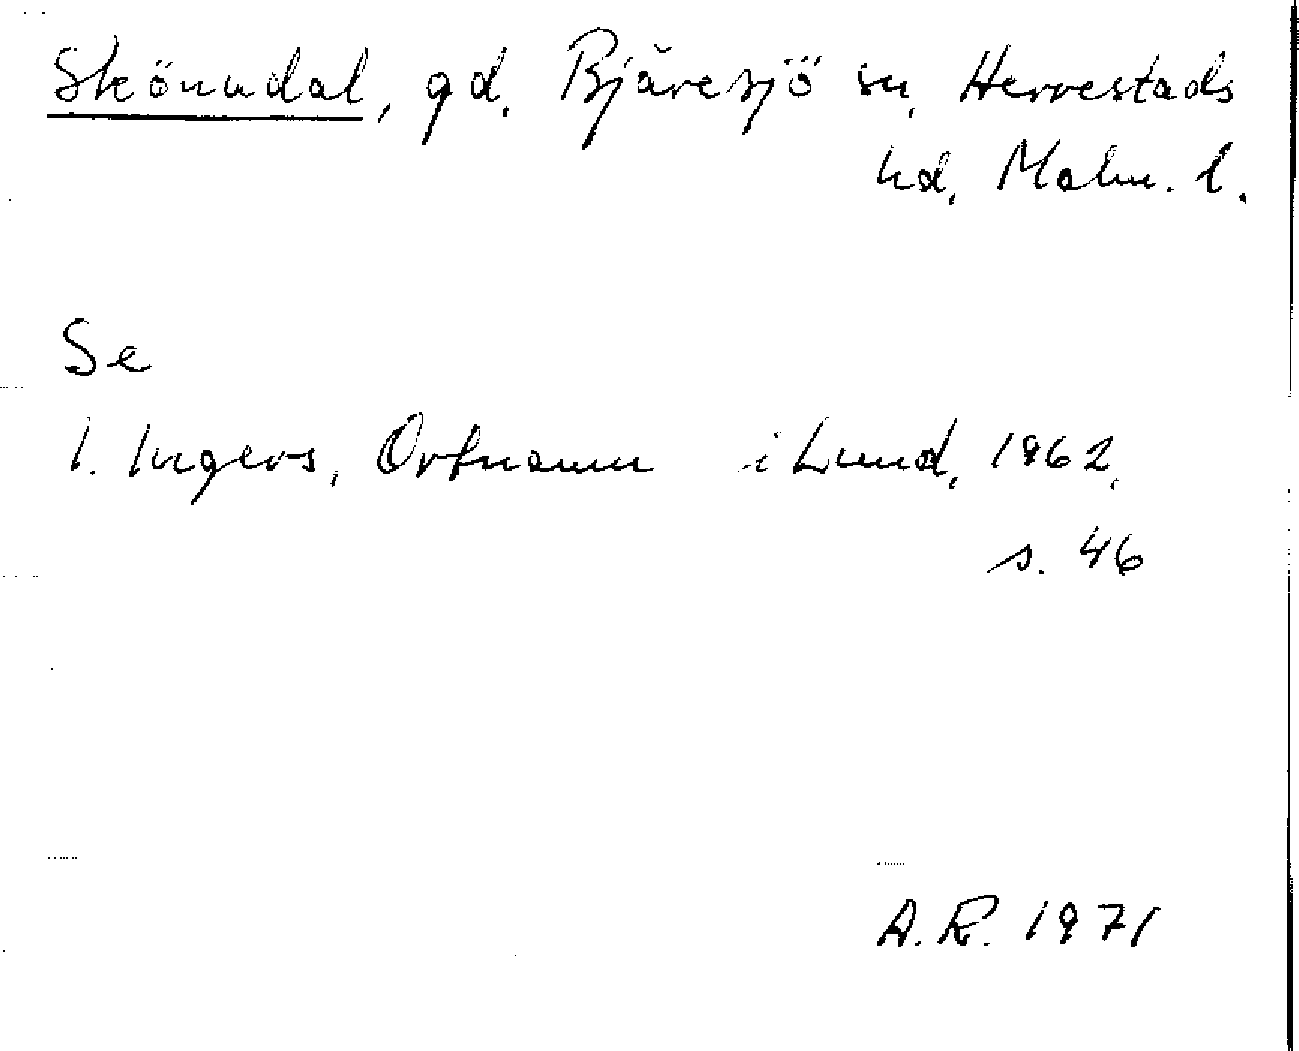 Skönudal, gd, Bjäresjö sn, Herrestads
hd, Malm. l.
Se
I. Ingers, Ortnamn i Lund, 1962,
s. 46
A.R. 1971